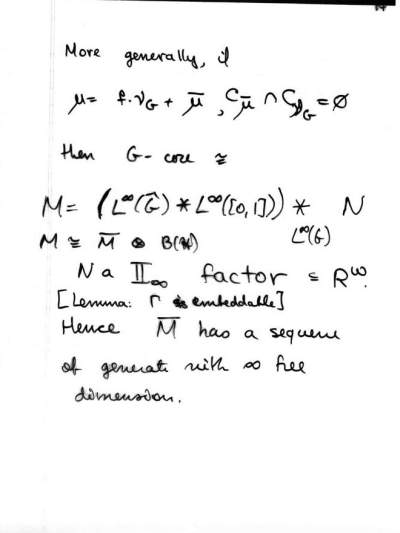 More generally, if
μ = f·ν_G + μ̄ , C_μ̄ ∩ C_ν_G = ∅
then G-core ≅
M = (L^∞(Ĝ) * L^∞([0,1])) * N
L^∞(G)
M ≅ M̄ ⊗ B(H)
N a II_∞ factor ⊆ R^ω.
[Lemma: Γ is embeddable]
Hence M̄ has a sequen
of generat with ∞ free
dimension.